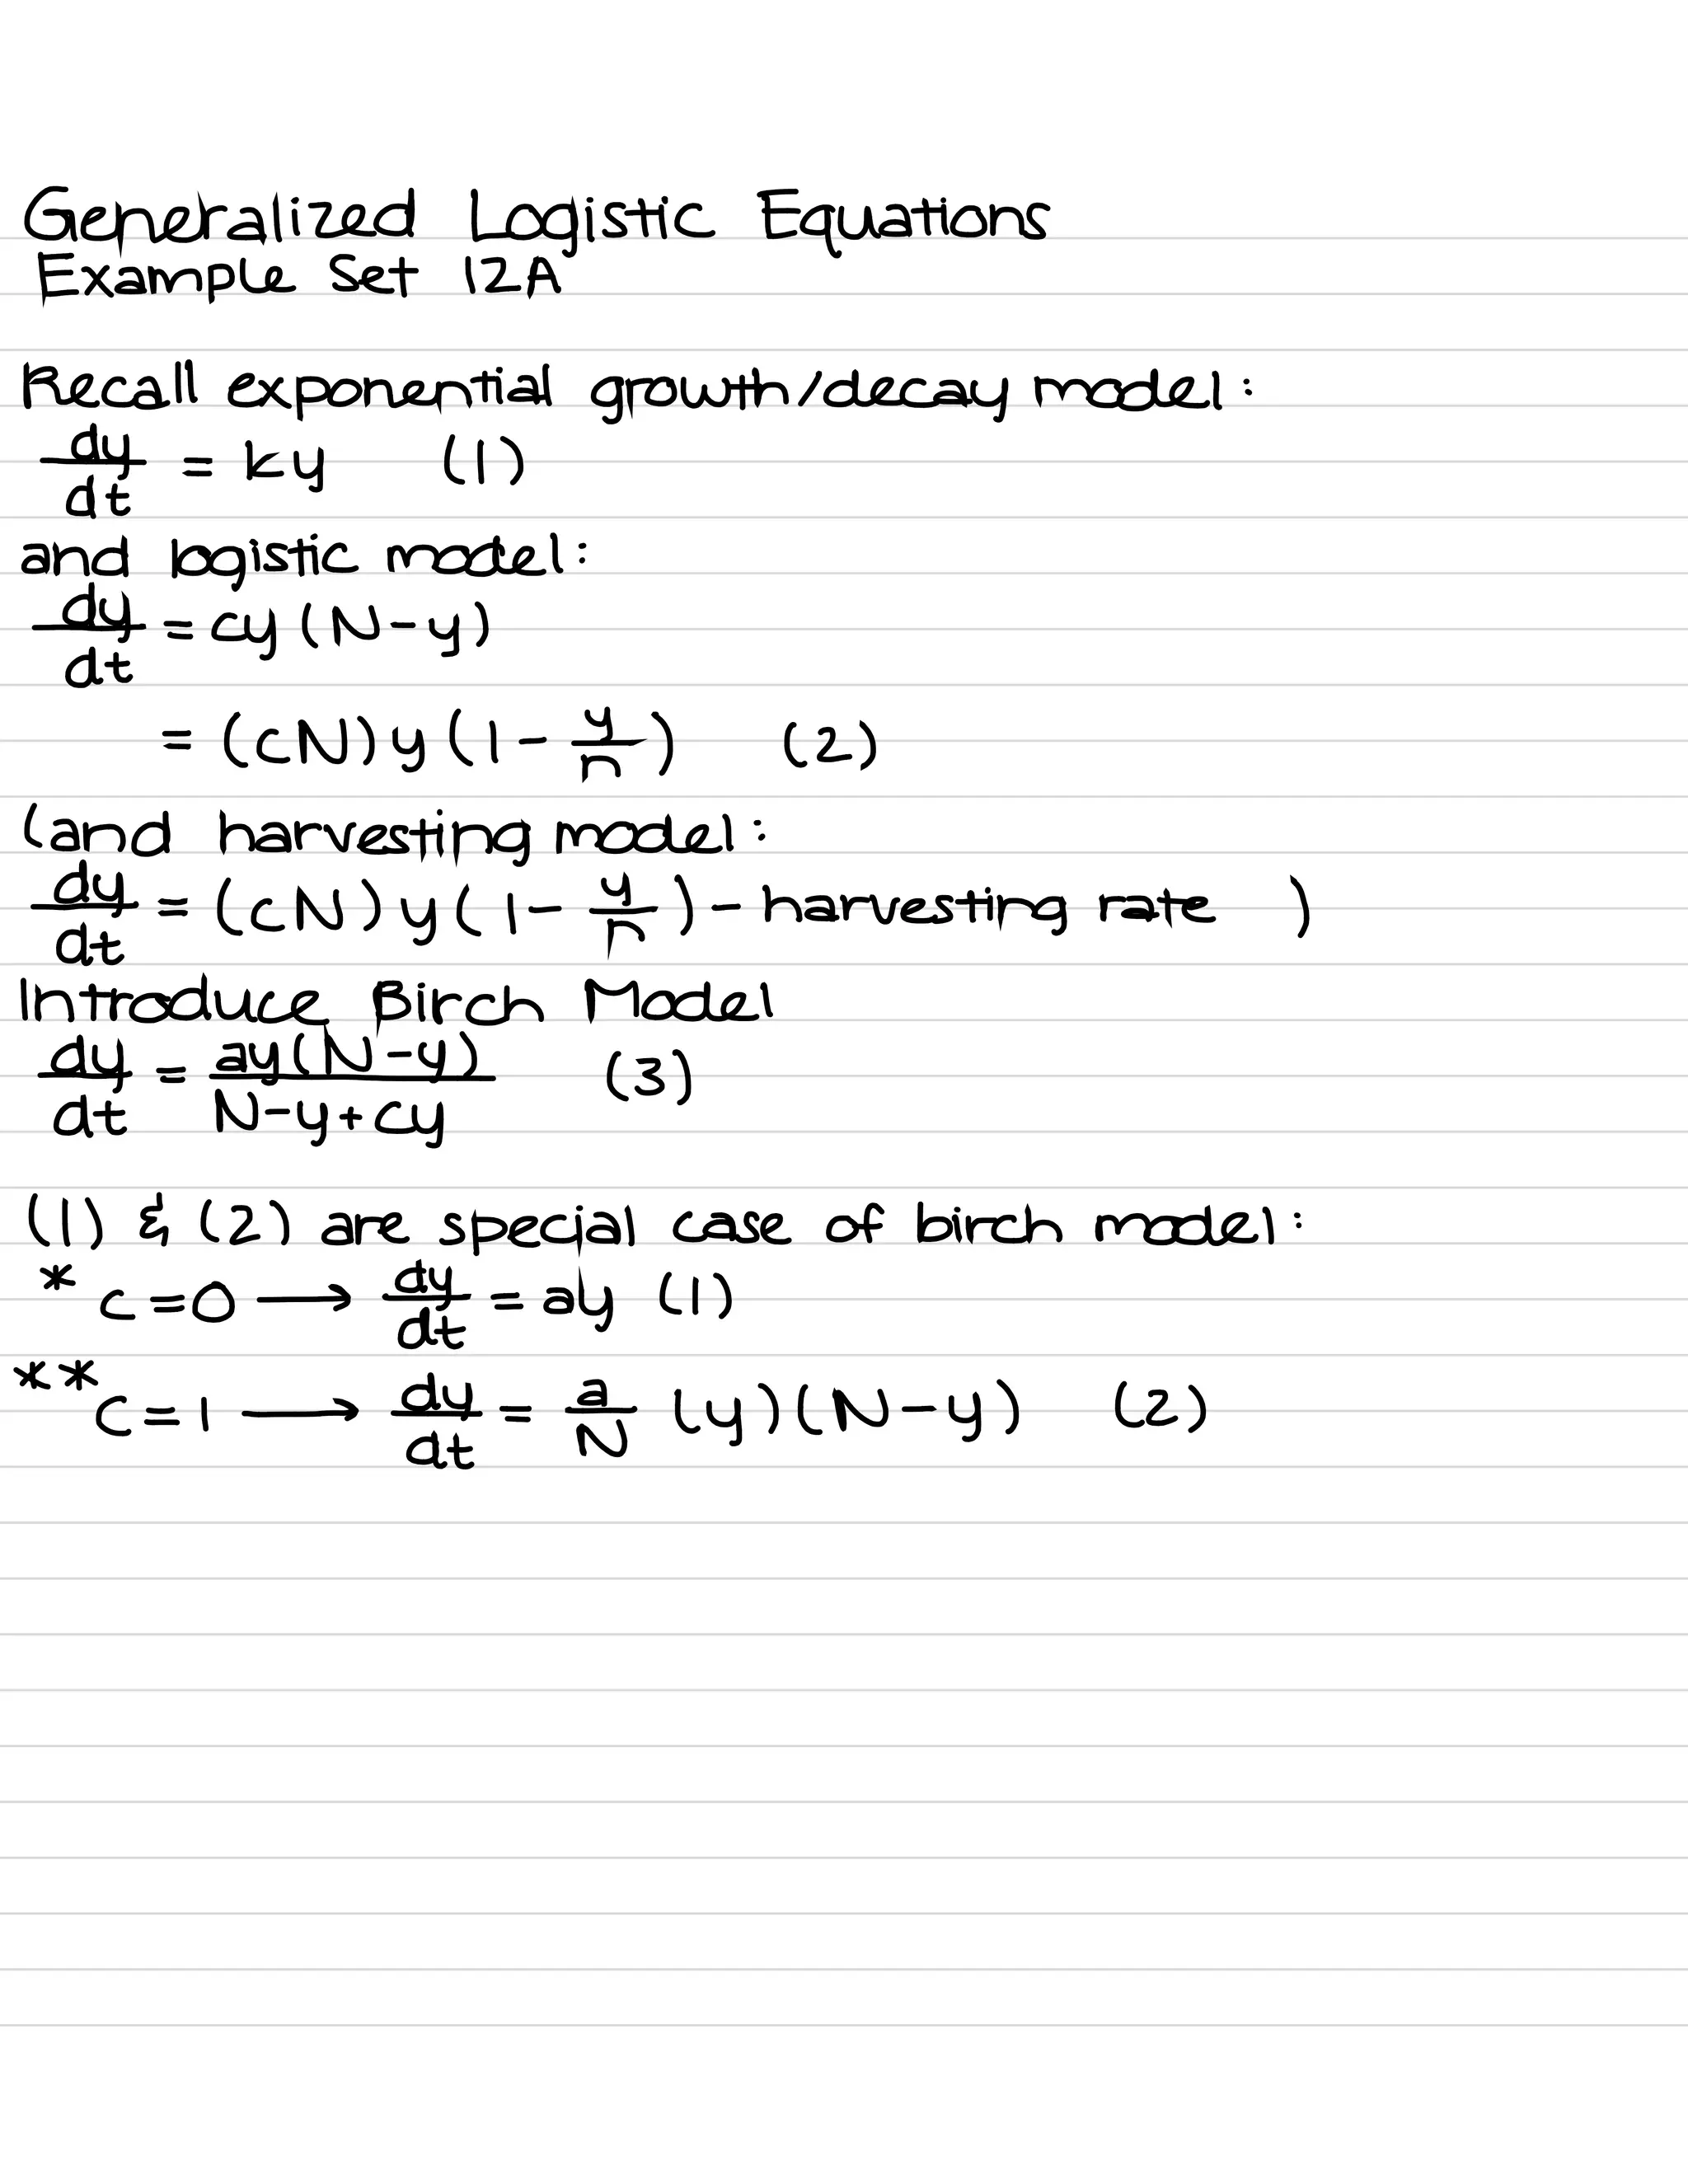 Generalized Logistic Equations
Example Set 12A
Recall exponential growth/decay model:
dy/dt = ky (1)
and logistic model:
dy/dt = cy(N-y)
= (cN)y(1-y/n) (2)
(and harvesting model:
dy/dt = (cN)y(1-y/n) - harvesting rate )
Introduce Birch Model
dy/dt = ay(N-y)/N-y+cy (3)
(1) & (2) are special case of birch model:
* c=0 → dy/dt = ay (1)
** c=1 → dy/dt = a/N (y)(N-y) (2)